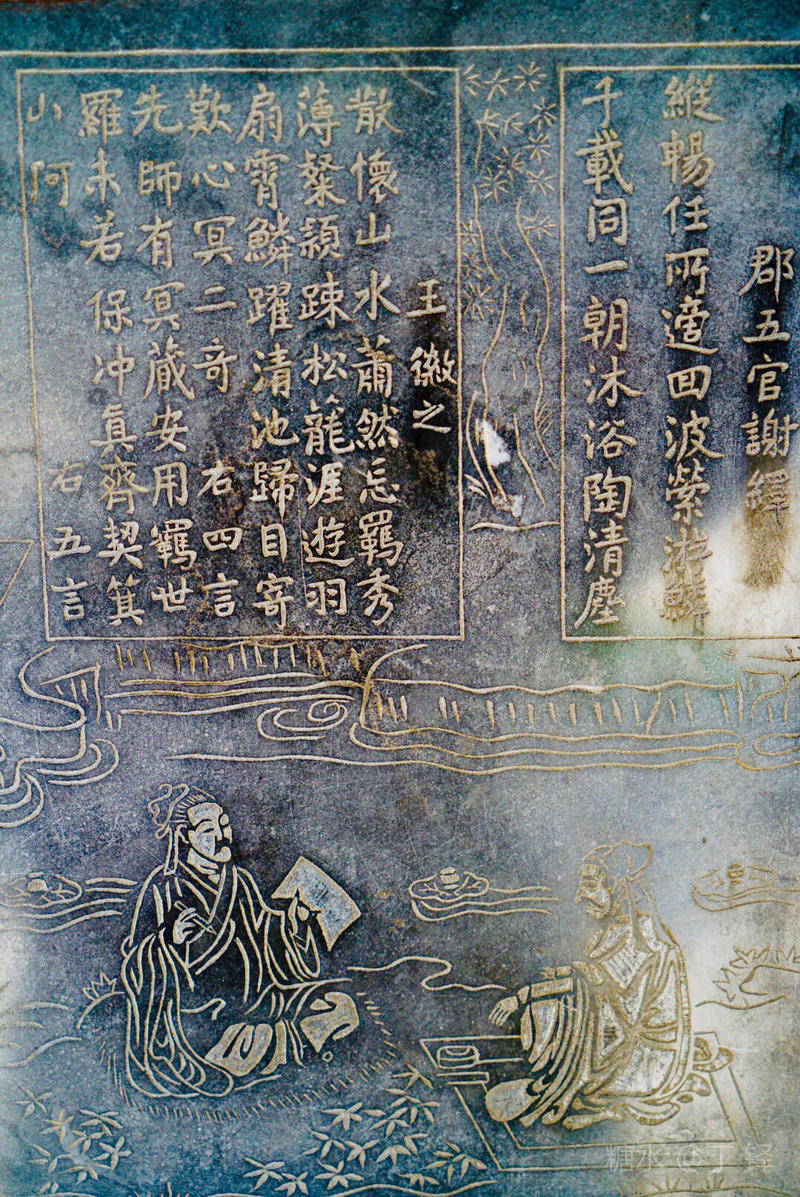 郡五官謝繹
縱暢任所適囬波縈游鱗
千載同一朝沐浴陶清塵
王徽之
散懷山水蕭然忘羈秀
薄粲穎踈松籠涯遊羽
扇霄鱗躍清池歸目寄
歎心冥二奇 右四言
先師有冥藏安用羈世
羅未若保冲眞齊契箕
山阿 右五言